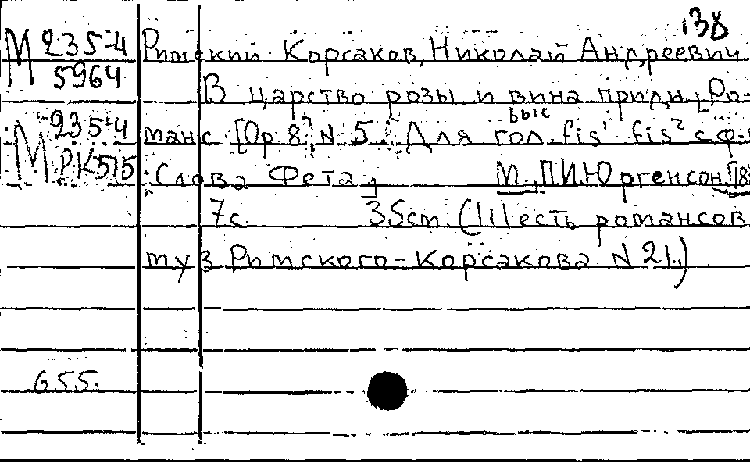 138
М 235-4 Римский-Корсаков, Николай Андреевич
5964 В царство розы и вина приди, Ро-
М 235-4 манс [Op 8, N 5. Для выс гол. fis¹ fis² с ф-
РК515 Слова Фета, М., П.И.Юргенсон, [18
7с. 35cm. (Шесть романсов
муз Римского-Корсакова N 21.)
655.